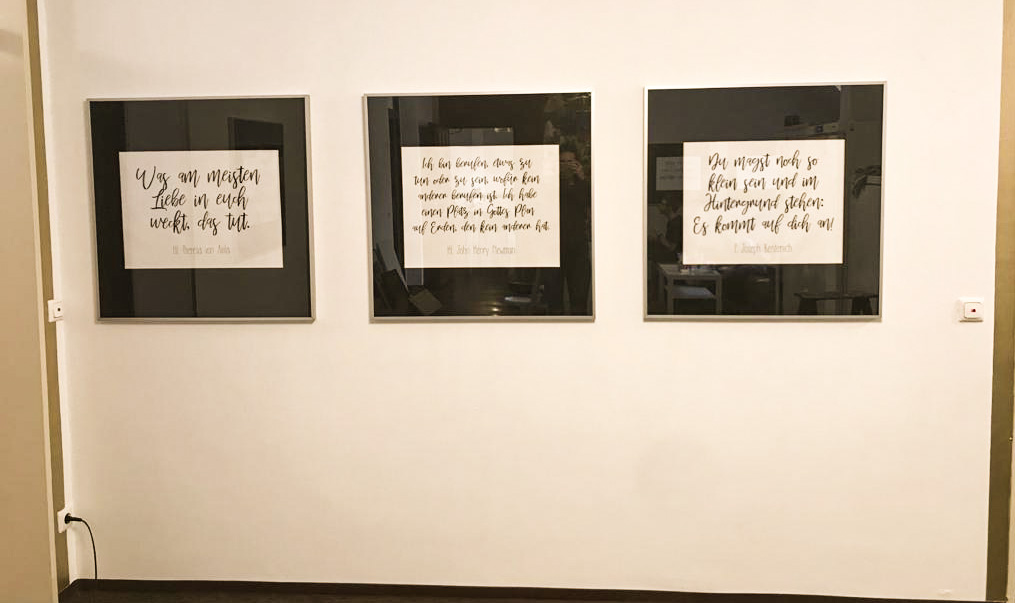 Was am meisten
Liebe in euch
weckt, das tut.
Hl. Theresa von Avila
Ich bin berufen, etwas zu
tun oder zu sein, wofür kein
anderer berufen ist. Ich habe
einen Platz in Gottes Plan
auf Erden, den kein anderer hat.
Hl. John Henry Newman
Du magst noch so
klein sein und im
Hintergrund stehen:
Es kommt auf dich an!
P. Joseph Kentenich